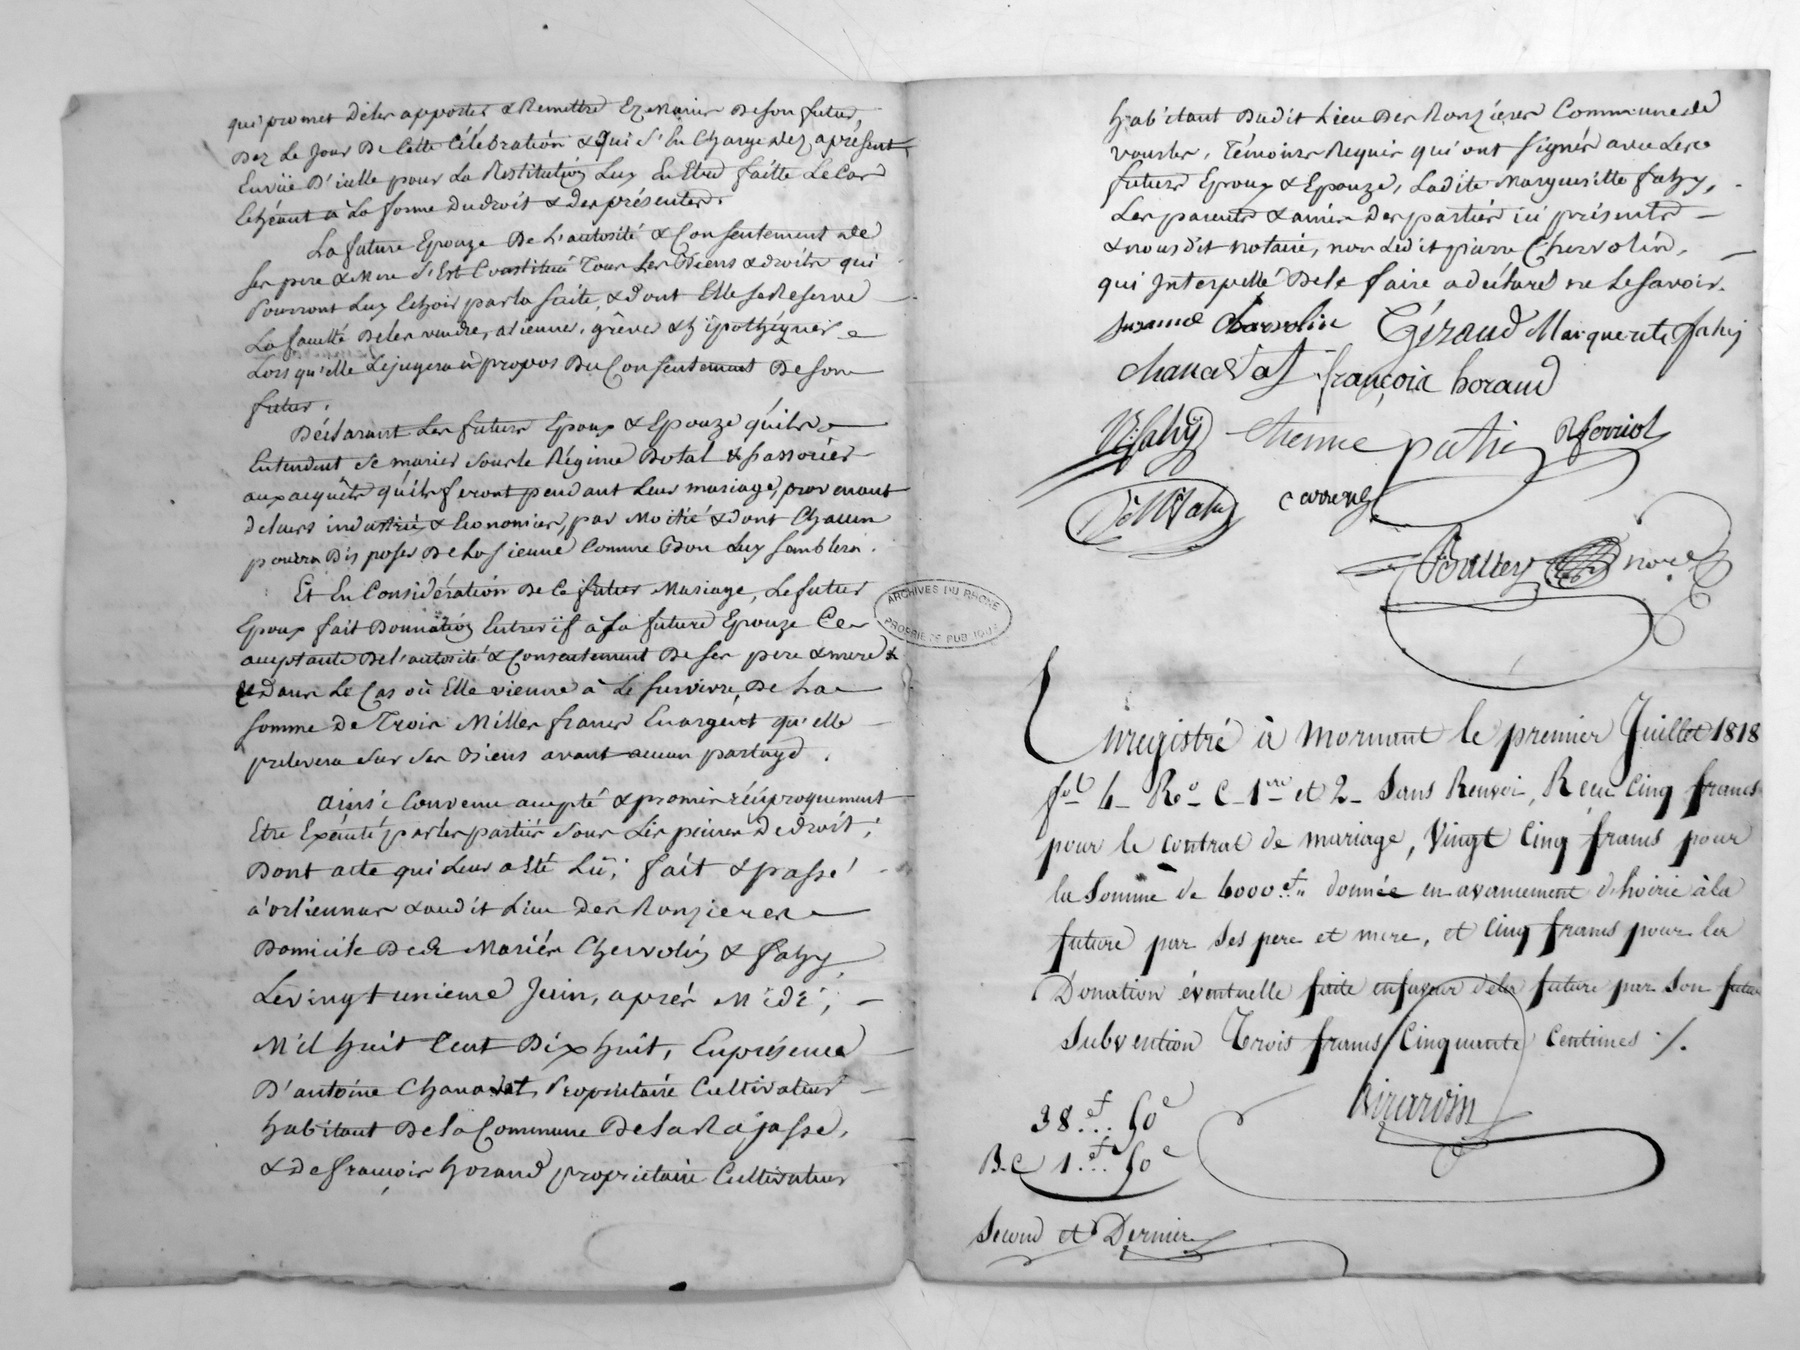 qui promet de les apporter & Remettre Ez Mains de son futur,
Dez Le Jour De Cette Célébration & qui s'En Charge Dez aprésent
Envüe D'icelle pour La Restitution Luy En Etre faitte Le Cas
Echéant à La forme Du droit & des présentes.
La future Epouze De L'autorité & Consentement de
ses pere & Mere s'Est Constitué Tous Les Biens & droits qui
Pourront Luy Echoir par la suite, & dont Elle se Reserve
La faculté De les vendre, aliener, grêver & hÿpothéquer
Lors qu'elle Le jugera à propos Du Consentement De son
futur.
Déclarant Les futurs Epoux & Epouze qu'ils
Entendent se marier sous le Régime Dotal & s'associer
aux acquêts qu'ils feront pendant Leur mariage, provenant
de Leurs industrie & Economies, par Moitié & dont Chacun
pourra Disposer De La sienne Comme Bon Luy semblera.
Et En Considération De Ce futur Mariage, Le futur
Epoux fait Donnation Entrevif à sa future Epouze Ce
acceptante De L'autorité & Consentement De ses pere & mere &
Dans Le Cas où Elle vienne à Le survivre, De La
somme De Trois Milles francs En argent qu'elle
prelevera sur ses Biens avant aucun partage.
Ainsi Convenu accepté & promis réciproquement
Etre Exécuté par les parties sous Les peines De droit;
Dont acte qui Leur a Eté Lû; fait & passé
à orliennas & audit Lieu Des Ronzieres
Domicile Des Mariés Chervolin & fahy,
Le vingt unieme Juin, après Midi,
Mil huit Cent Dix huit, En présence
D'antoine Chanavat, Propriétaire Cultivateur
habitant De la Commune De La Rajasse,
& De françois horand propriétaire Cultivateur
habitant Dudit Lieu Des Ronzieres Commune de
vourles, Témoins Requis qui ont signés avec Les
futurs Epoux & Epouze, Ladite Margueritte fahy,
Les parents & amis Des parties ici présents
& nous dit notaire, non Ledit pierre Chervolin,
qui Interpellé De Le faire a déclaré ne Le savoir.
suzanne chervolin Géraud Marguerite fahy
chanavat françois horand
fahÿ etienne patin ferriol
fahy carrens
Enregistré à Mornant le premier Juillet 1818
fol. 6 Ro. C. 1re et 2 Sans Renvoi, Recu Cinq francs
pour le contrat de mariage, Vingt Cinq francs pour
la Somme de 4000 f. donnée en avancement d'hoirie à la
future par ses pere et mere, et Cinq francs pour la
Donation éventuelle faite en faveur de la future par son futur
Subvention Trois francs Cinquante Centimes ./.
38 f. 50 c
B.C 1 f. 50 c
Second et Dernier
ARCHIVES DU RHÔNE
PROPRIÉTÉ PUBLIQUE